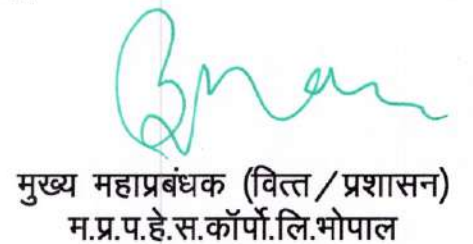 मुख्य महाप्रबंधक (वित्त/प्रशासन)
म.प्र.प.हे.स.कॉर्पो.लि.भोपाल